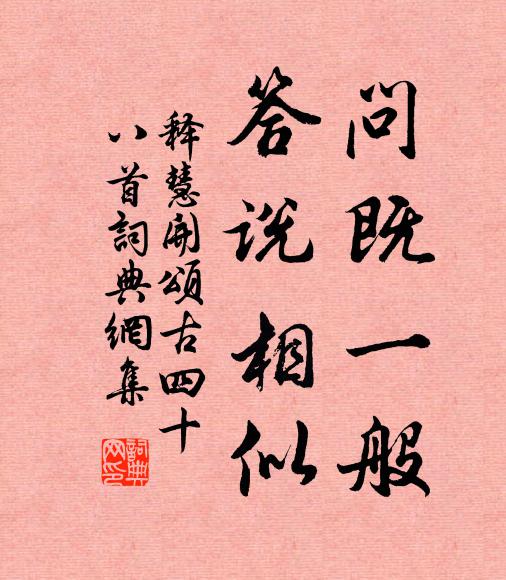 问既一般
答说相似
释慧開頌古四十
八首詞典網集
詞典网印